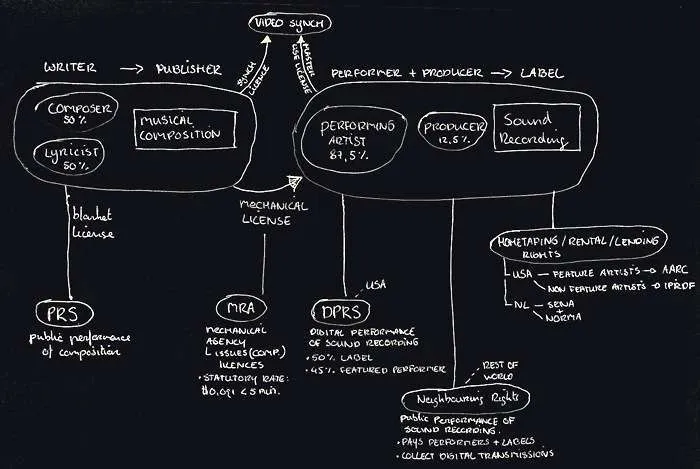 VIDEO SYNCH
SYNCH
LICENCE
MASTER
USE LICENSE
WRITER → PUBLISHER
PERFORMER + PRODUCER → LABEL
COMPOSER
50%
LYRICIST
50%
MUSICAL
COMPOSITION
PERFORMING
ARTIST
87,5%
PRODUCER
12,5%
Sound
Recording
MECHANICAL
LICENSE
blanket
license
HOMETAPING/RENTAL/LENDING
RIGHTS
USA — FEATURE ARTISTS → AARC
NON FEATURE ARTISTS →
NL — SENA
+
NORMA
PRS
public performance
of composition
MRA
MECHANICAL
AGENCY
ISSUES (COMP.)
LICENCES
• STATUTORY RATE:
$0,091 < 5 min.
USA
DPRS
DIGITAL PERFORMANCE
OF SOUND RECORDING
• 50% LABEL
• 45% FEATURED PERFORMER
REST OF
WORLD
Neighbouring Rights
PUBLIC PERFORMANCE OF
SOUND RECORDING.
• PAYS PERFORMERS + LABELS
• COLLECT DIGITAL TRANSMISSIONS